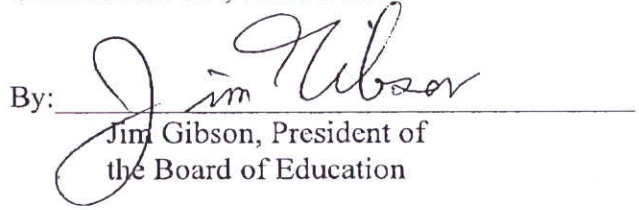 By: Jim Gibson
Jim Gibson, President of
the Board of Education